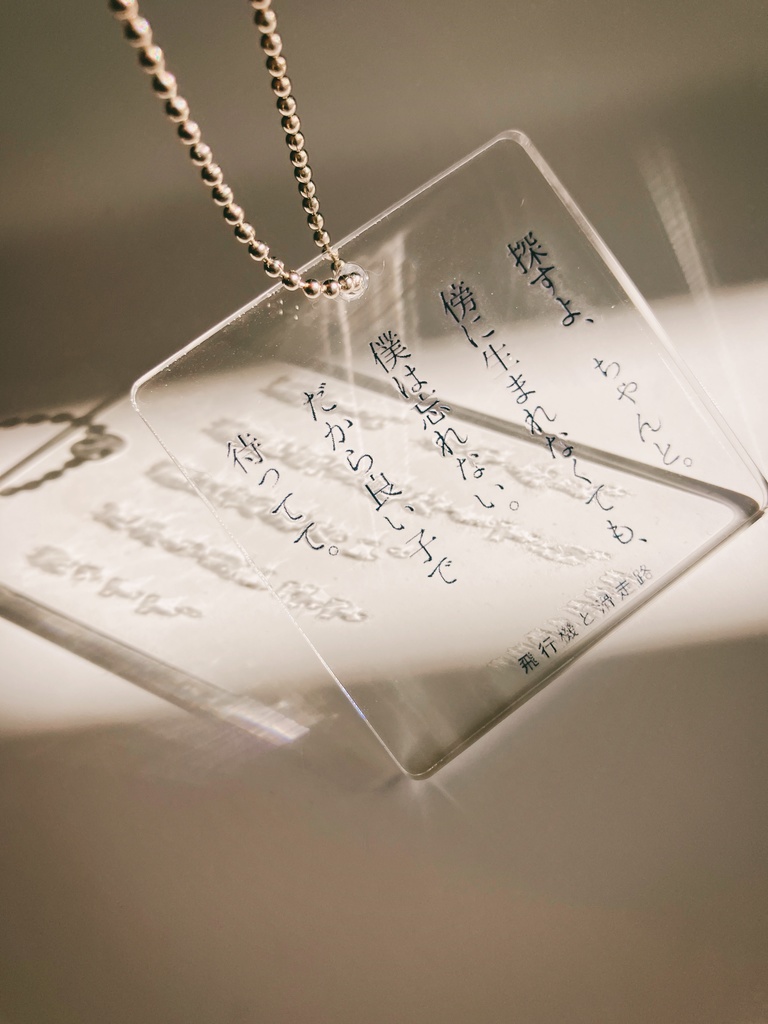 探すよ、ちゃんと。
傍に生まれなくても、
僕は忘れない。
だから良い子で
待ってて。
飛行機と滑走路